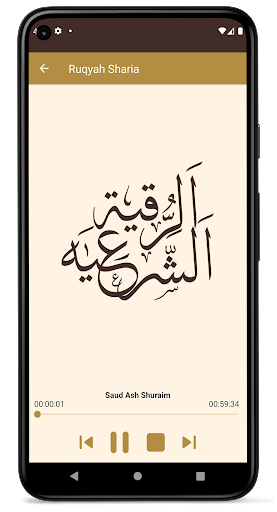 Ruqyah Sharia
الرُّقية
الشَّرعيه
Saud Ash Shuraim
00:00:01 00:59:34